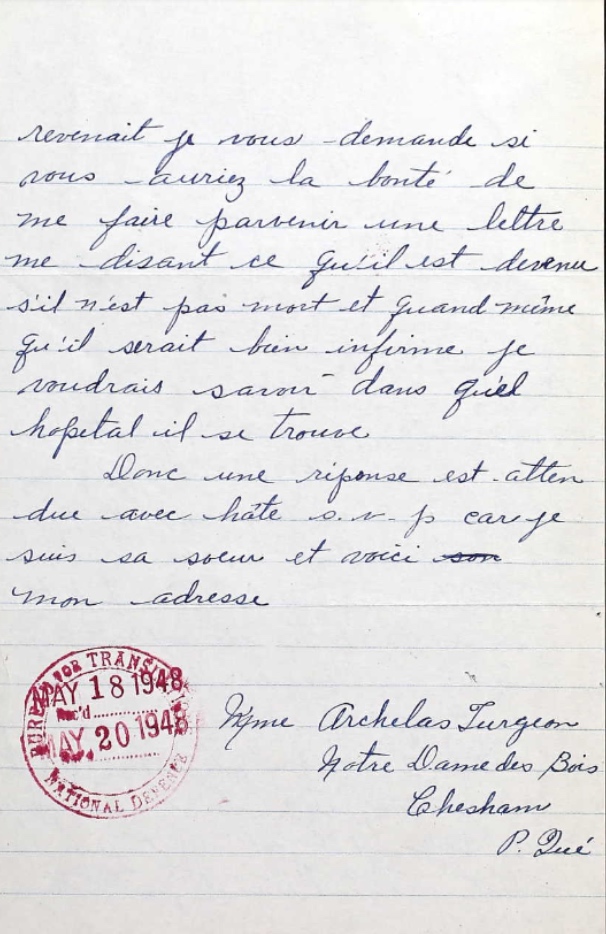 revenait je vous demande si
vous auriez la bonté de
me faire parvenir une lettre
me disant ce qu'il est devenu
s'il n'est pas mort et quand même
qu'il serait bien infirme je
voudrais savoir dans quel
hopetal il se trouve
Donc une réponse est atten
due avec hâte s.v.p car je
suis sa soeur et voici son
mon adresse
BUREAU FOR TRANSLATIONS
MAY 18 1948
Rec'd
MAY 20 1948
NATIONAL DEFENCE
Mme Archelas Turgeon
Notre Dame des Bois
Chesham
P. Qué